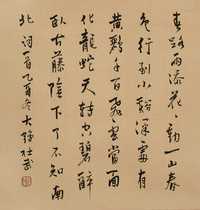 春路雨添花々動一山春
色行到小谿深處有
黃鸝千百飛雲當面
化龍蛇夭轉空碧醉
臥古藤陰下了不知南
北